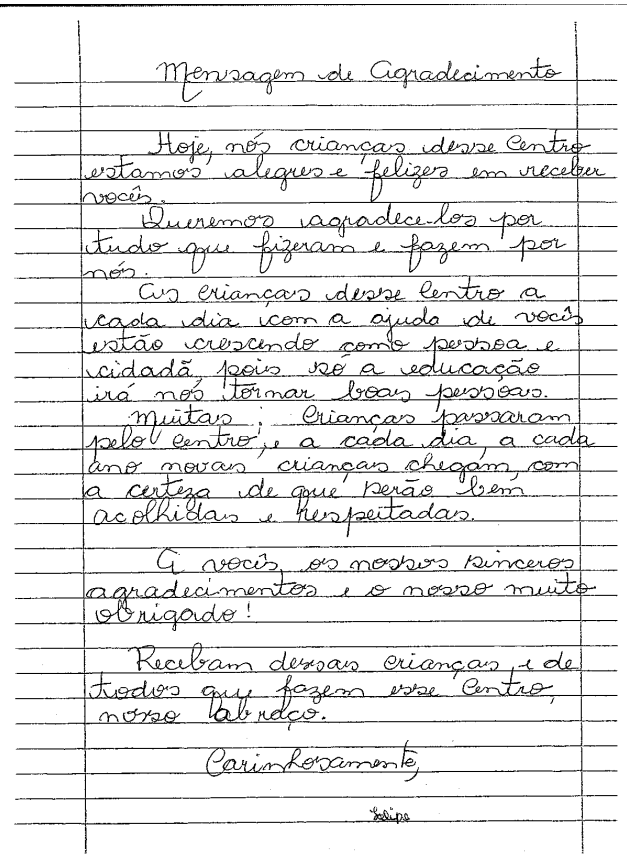 Mensagem de Agradecimento
Hoje, nós crianças desse Centro
estamos alegres e felizes em receber
vocês.
Queremos agradece-los por
tudo que fizeram e fazem por
nós.
As crianças desse Centro a
cada dia com a ajuda de vocês
estão crescendo como pessoa e
cidadã, pois só a educação
irá nos tornar boas pessoas.
Muitas; Crianças passaram
pelo centro, e a cada dia, a cada
ano novas crianças chegam, com
a certeza de que serão bem
acolhidas e respeitadas.
A vocês, os nossos sinceros
agradecimentos e o nosso muito
obrigado!
Recebam dessas crianças, e de
todos que fazem esse Centro,
nosso abraço.
Carinhosamente,
Felipe